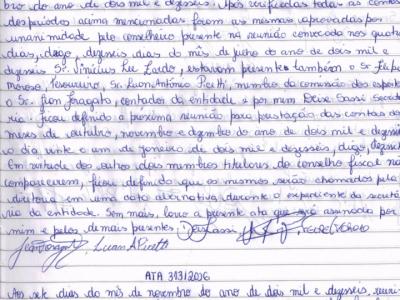 bro do ano de dois mil e dezesseis. Após verificadas todas as contas
dos períodos acima mencionados foram as mesmas aprovadas por
unanimidade pelo conselheiro presente na reunião convocada nos quatro
duas, digo, dezesseis dias do mês de junho do ano de dois mil e
dezesseis Sr. Vinícius Lardo, estavam presentes também o Sr. Felipe
Moroso, Tesoureiro, Sr. Luan Antônio Piretti, membro da comissão dos esportes
o Sr. Jean Fragato, contador da entidade e por mim Deise Sassi Secretá
ria. ficou definido a próxima reunião para prestação das contas dos
meses de outubro, novembro e dezembro do ano de dois mil e dezesseis
o dia vinte e um de janeiro de dois mil e dezesseis, digo, dezesete
Em virtude dos outros dois membros titulares do conselho fiscal não
comparecerem, ficou definido que os mesmos serão chamados pela
diretoria em uma data alternativa durante o expediente da secretá
ria da entidade. Sem mais, lavro a presente ata que será assinada por
mim e pelos demais presentes. DeiSassi
Luan A Piretti
ATA 3131/2016
Aos sete dias do mês de novembro do ano de dois mil e dezesseis, reuni